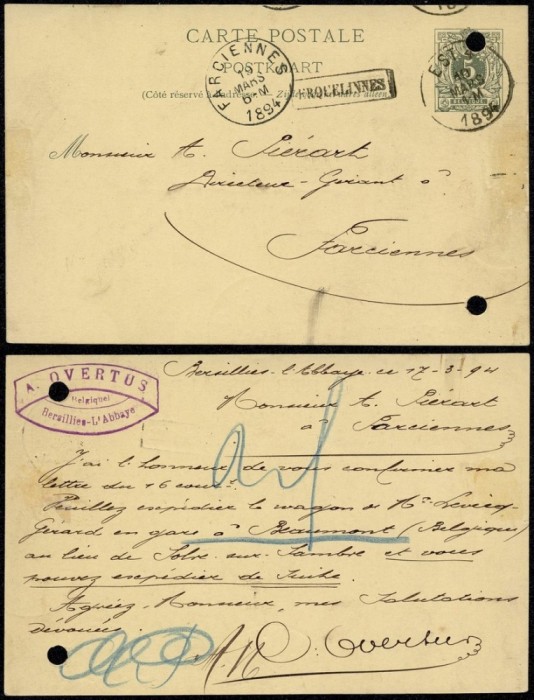 CARTE POSTALE
POSTKAART
(Côté réservé à l'adresse. — Zijde
FARCIENNES
19
MARS
6-M
1894
ERQUELINNES
5
MARS
1894
Monsieur A. Piérart
Directeur-Gérant à
Farciennes
A. OVERTUS
(Belgique)
Bersillies-L'Abbaye
Bersillies-l'Abbaye ce 17-3-94
Monsieur A. Piérart
à Farciennes
J'ai l'honneur de vous confirmer ma
lettre du 16 court.
Veuillez expédier le wagon de Mr. Levecq-
Gérard en gare à Beaumont (Belgique)
au lieu de Solre-sur-Sambre et vous
pouvez expédier de suite.
Agréez, Monsieur, mes salutations
dévouées.
A. Overtus